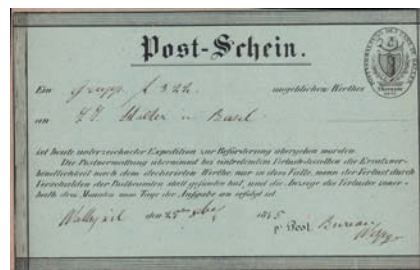 Post-Schein.
Ein Grupp f 322. angeblichen Werthes
an J. J. Staller in Basel
ist heute unterzeichneter Expedition zur Beförderung übergeben worden.
Die Postverwaltung übernimmt bei eintretenden Verlust-Gefällen die Ersatzver-
bindlichkeit nach dem declarirten Werthe nur in dem Falle, wenn der Verlust durch
Verschulden der Postbeamten statt gefunden hat, und die Anzeige des Verlustes inner-
halb drei Monaten vom Tage der Aufgabe an erfolgt ist.
den 25ten 1845
p. Post Bureau